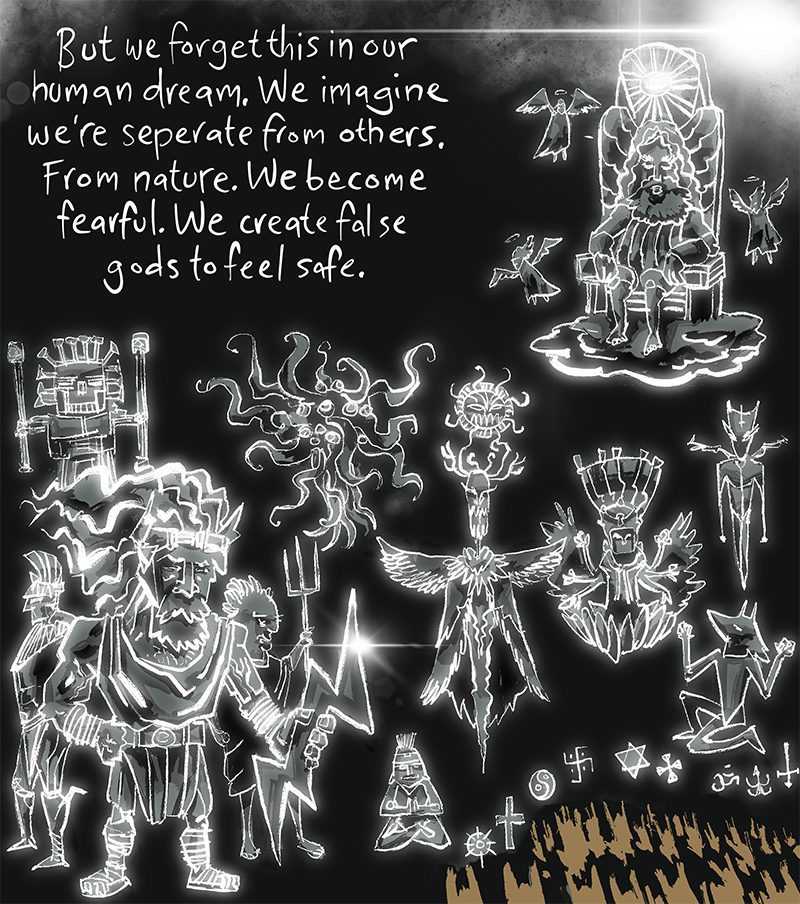 But we forget this in our
human dream. We imagine
we're seperate from others.
From nature. We become
fearful. We create false
gods to feel safe.